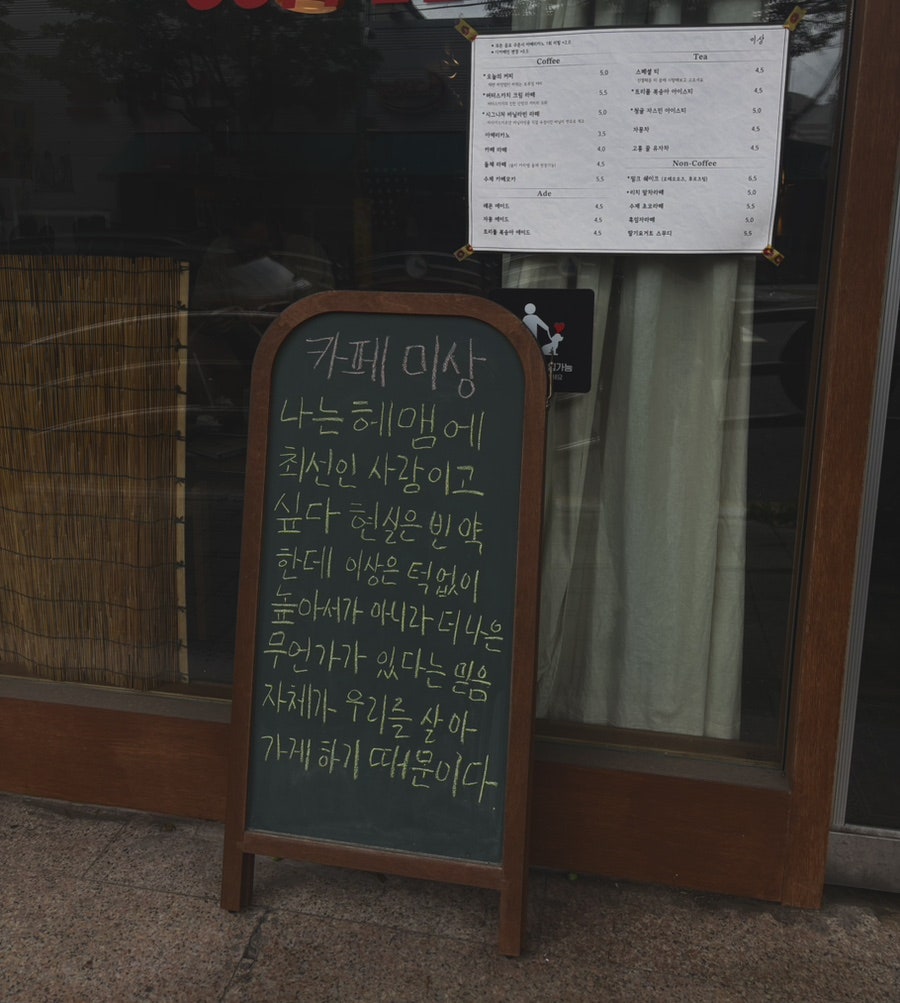 이상
Coffee
*오늘의 커피 5,0
*버터스카치 크림 라떼 5,5
*시그니처 바닐라빈 라떼 5,0
아메리카노 3.5
카페 라떼 4,0
돌체 라떼 4,5
수제 카페모카 5,5
Ade
레몬 에이드 4,5
자몽 에이드 4,5
트리플 복숭아 에이드 4,5
Tea
스페셜 티 4,5
*트리플 복숭아 아이스티 4,5
*청귤 자스민 아이스티 5,0
자몽차 4,5
고흥 꿀 유자차 4,5
Non-Coffee
*밀크 쉐이크 6,5
*리치 말차라떼 5,0
수제 초코라떼 5,5
흑임자라떼 5,0
딸기요거트 스무디 5,5
카페 이상
나는 헤맴에
최선인 사랑이고
싶다 현실은 빈약
한데 이상은 턱없이
높아서가 아니라 더 나은
무언가가 있다는 믿음
자체가 우리를 살아
가게 하기 때문이다.